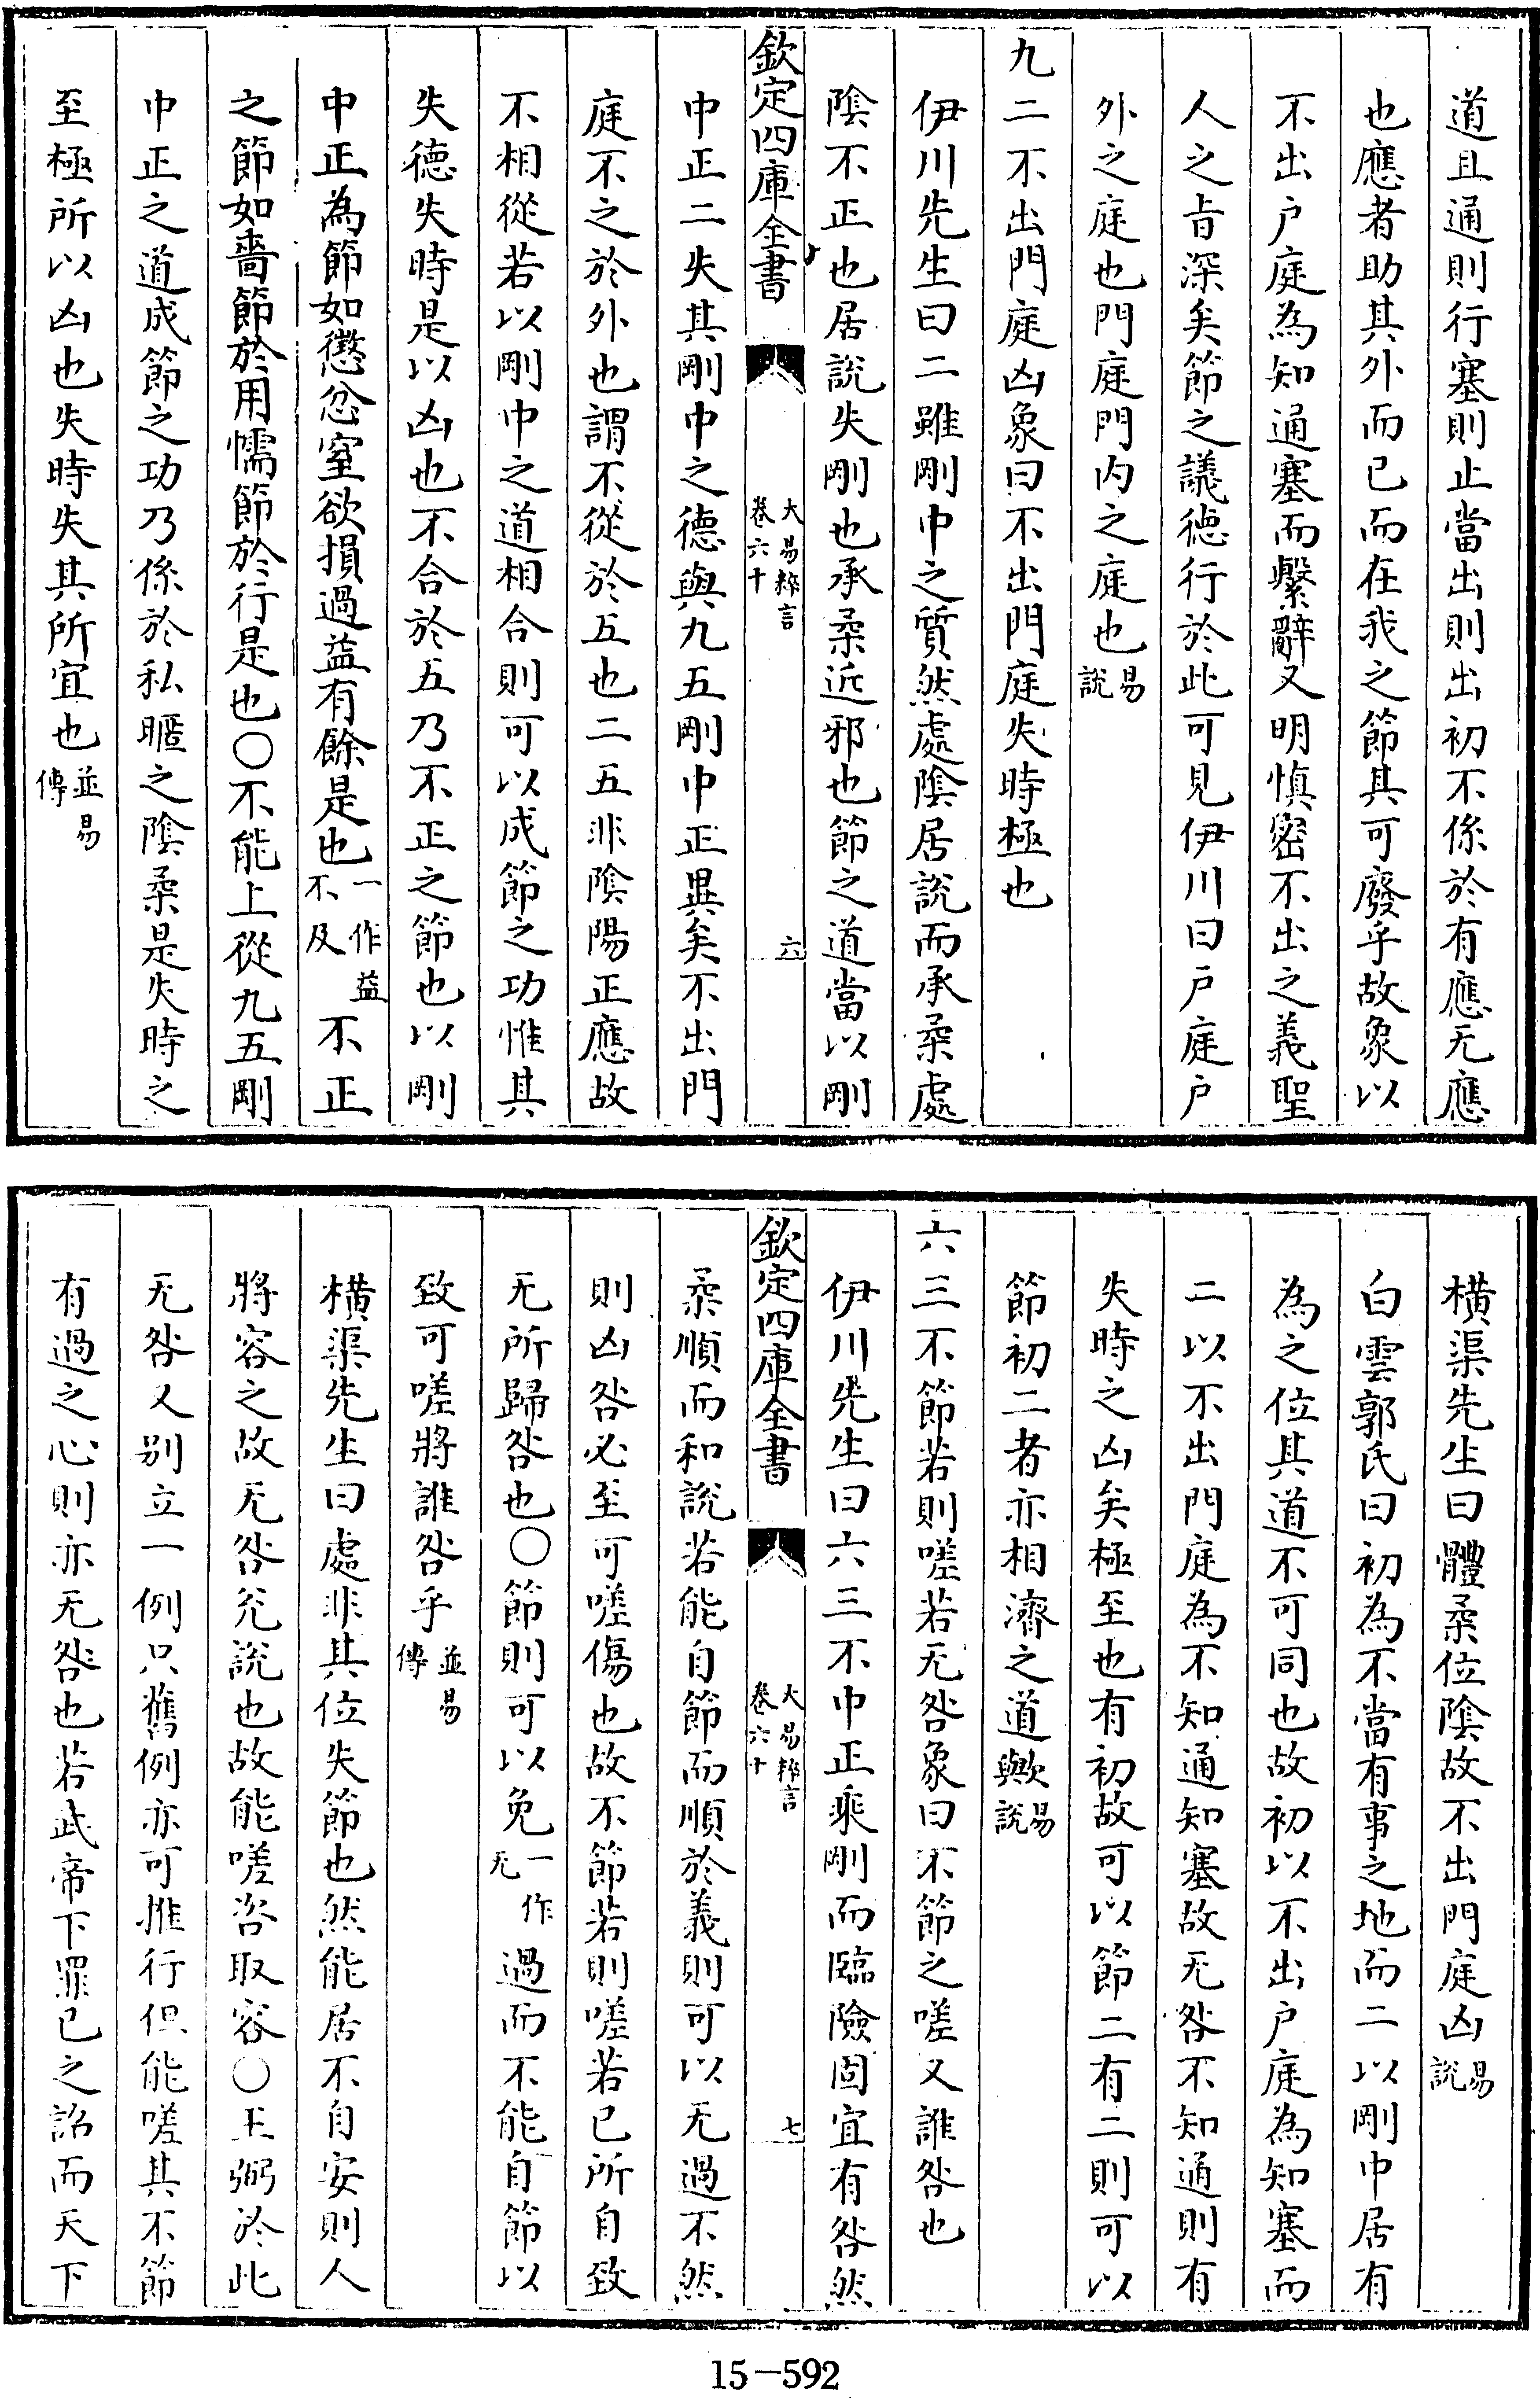 道且通則行塞則止當出則出初不係於有應无應
也應者助其外而已而在我之節其可廢乎故象以
不出户庭為知通塞而繫辭又明慎密不出之義聖
人之㫖深矣節之議德行於此可見伊川曰户庭户
外之庭也門庭門内之庭也易說
九二不出門庭凶象曰不出門庭失時極也
伊川先生曰二雖剛中之質然處隂居說而承柔處
隂不正也居說失剛也承柔近邪也節之道當以剛
欽定四庫全書
大易粹言
卷六十
六
中正二失其剛中之德與九五剛中正異矣不出門
庭不之於外也謂不從於五也二五非隂陽正應故
不相從若以剛中之道相合則可以成節之功惟其
失德失時是以凶也不合於五乃不正之節也以剛
中正為節如懲忿窒欲損過益有餘是也一作益不及不正
之節如嗇節於用懦節於行是也○不能上從九五剛
中正之道成節之功乃係於私暱之隂柔是失時之
至極所以凶也失時失其所宜也並易傳
橫渠先生曰體柔位隂故不出門庭凶易說
白雲郭氏曰初為不當有事之地而二以剛中居有
為之位其道不可同也故初以不出户庭為知塞而
二以不出門庭為不知通知塞故无咎不知通則有
失時之凶矣極至也有初故可以節二有二則可以
節初二者亦相濟之道歟易說
六三不節若則嗟若无咎象曰不節之嗟又誰咎也
伊川先生曰六三不中正乘剛而臨險固宜有咎然
欽定四庫全書
大易粹言
卷六十
七
柔順而和說若能自節而順於義則可以无過不然
則凶咎必至可嗟傷也故不節若則嗟若已所自致
无所歸咎也○節則可以免一作无過而不能自節以
致可嗟將誰咎乎並易傳
橫渠先生曰處非其位失節也然能居不自安則人
將容之故无咎兊說也故能嗟咨取容○王弼於此
无咎又别立一例只舊例亦可推行但能嗟其不節
有過之心則亦无咎也若武帝下罪已之詔而天下
15-592